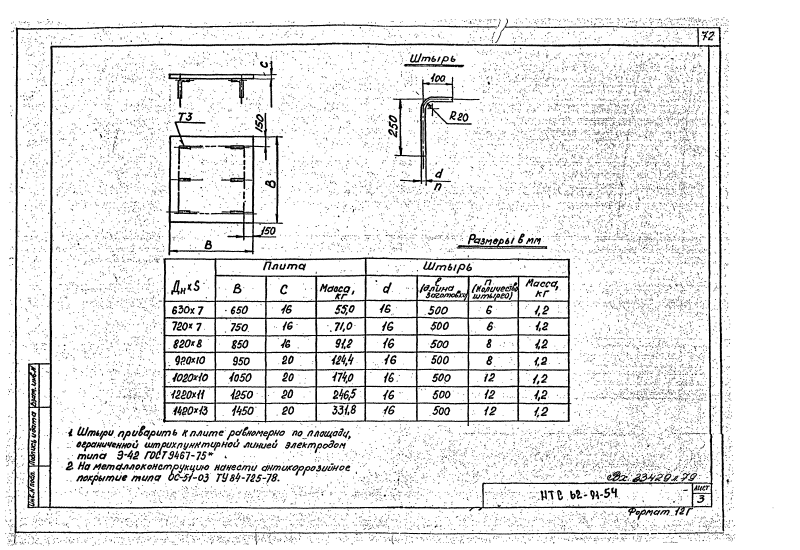 72
Штырь
С
100
Т3
150
250
R20
В
d
n
150
В
Размеры в мм
Плита Штырь
Дн×S В С Масса, кг d ℓ (длина заготовки) n (количество штырей) Масса, кг
630×7 650 16 55,0 16 500 6 1,2
720×7 750 16 71,0 16 500 6 1,2
820×8 850 16 91,2 16 500 8 1,2
920×10 950 20 124,4 16 500 8 1,2
1020×10 1050 20 174,0 16 500 12 1,2
1220×11 1250 20 246,5 16 500 12 1,2
1420×13 1450 20 331,8 16 500 12 1,2
1. Штыри приварить к плите равномерно по площади,
ограниченной штрихпунктирной линией электродом
типа Э-42 ГОСТ 9467-75*
2. На металлоконструкцию нанести антикоррозийное
покрытие типа ОС-51-03 ТУ 84-725-78.
Инв.№ подл. Подпись и дата Взам.инв.№
Вх. 23429 л 79
НТС 62-91-54
Лист
3
Формат 12Г